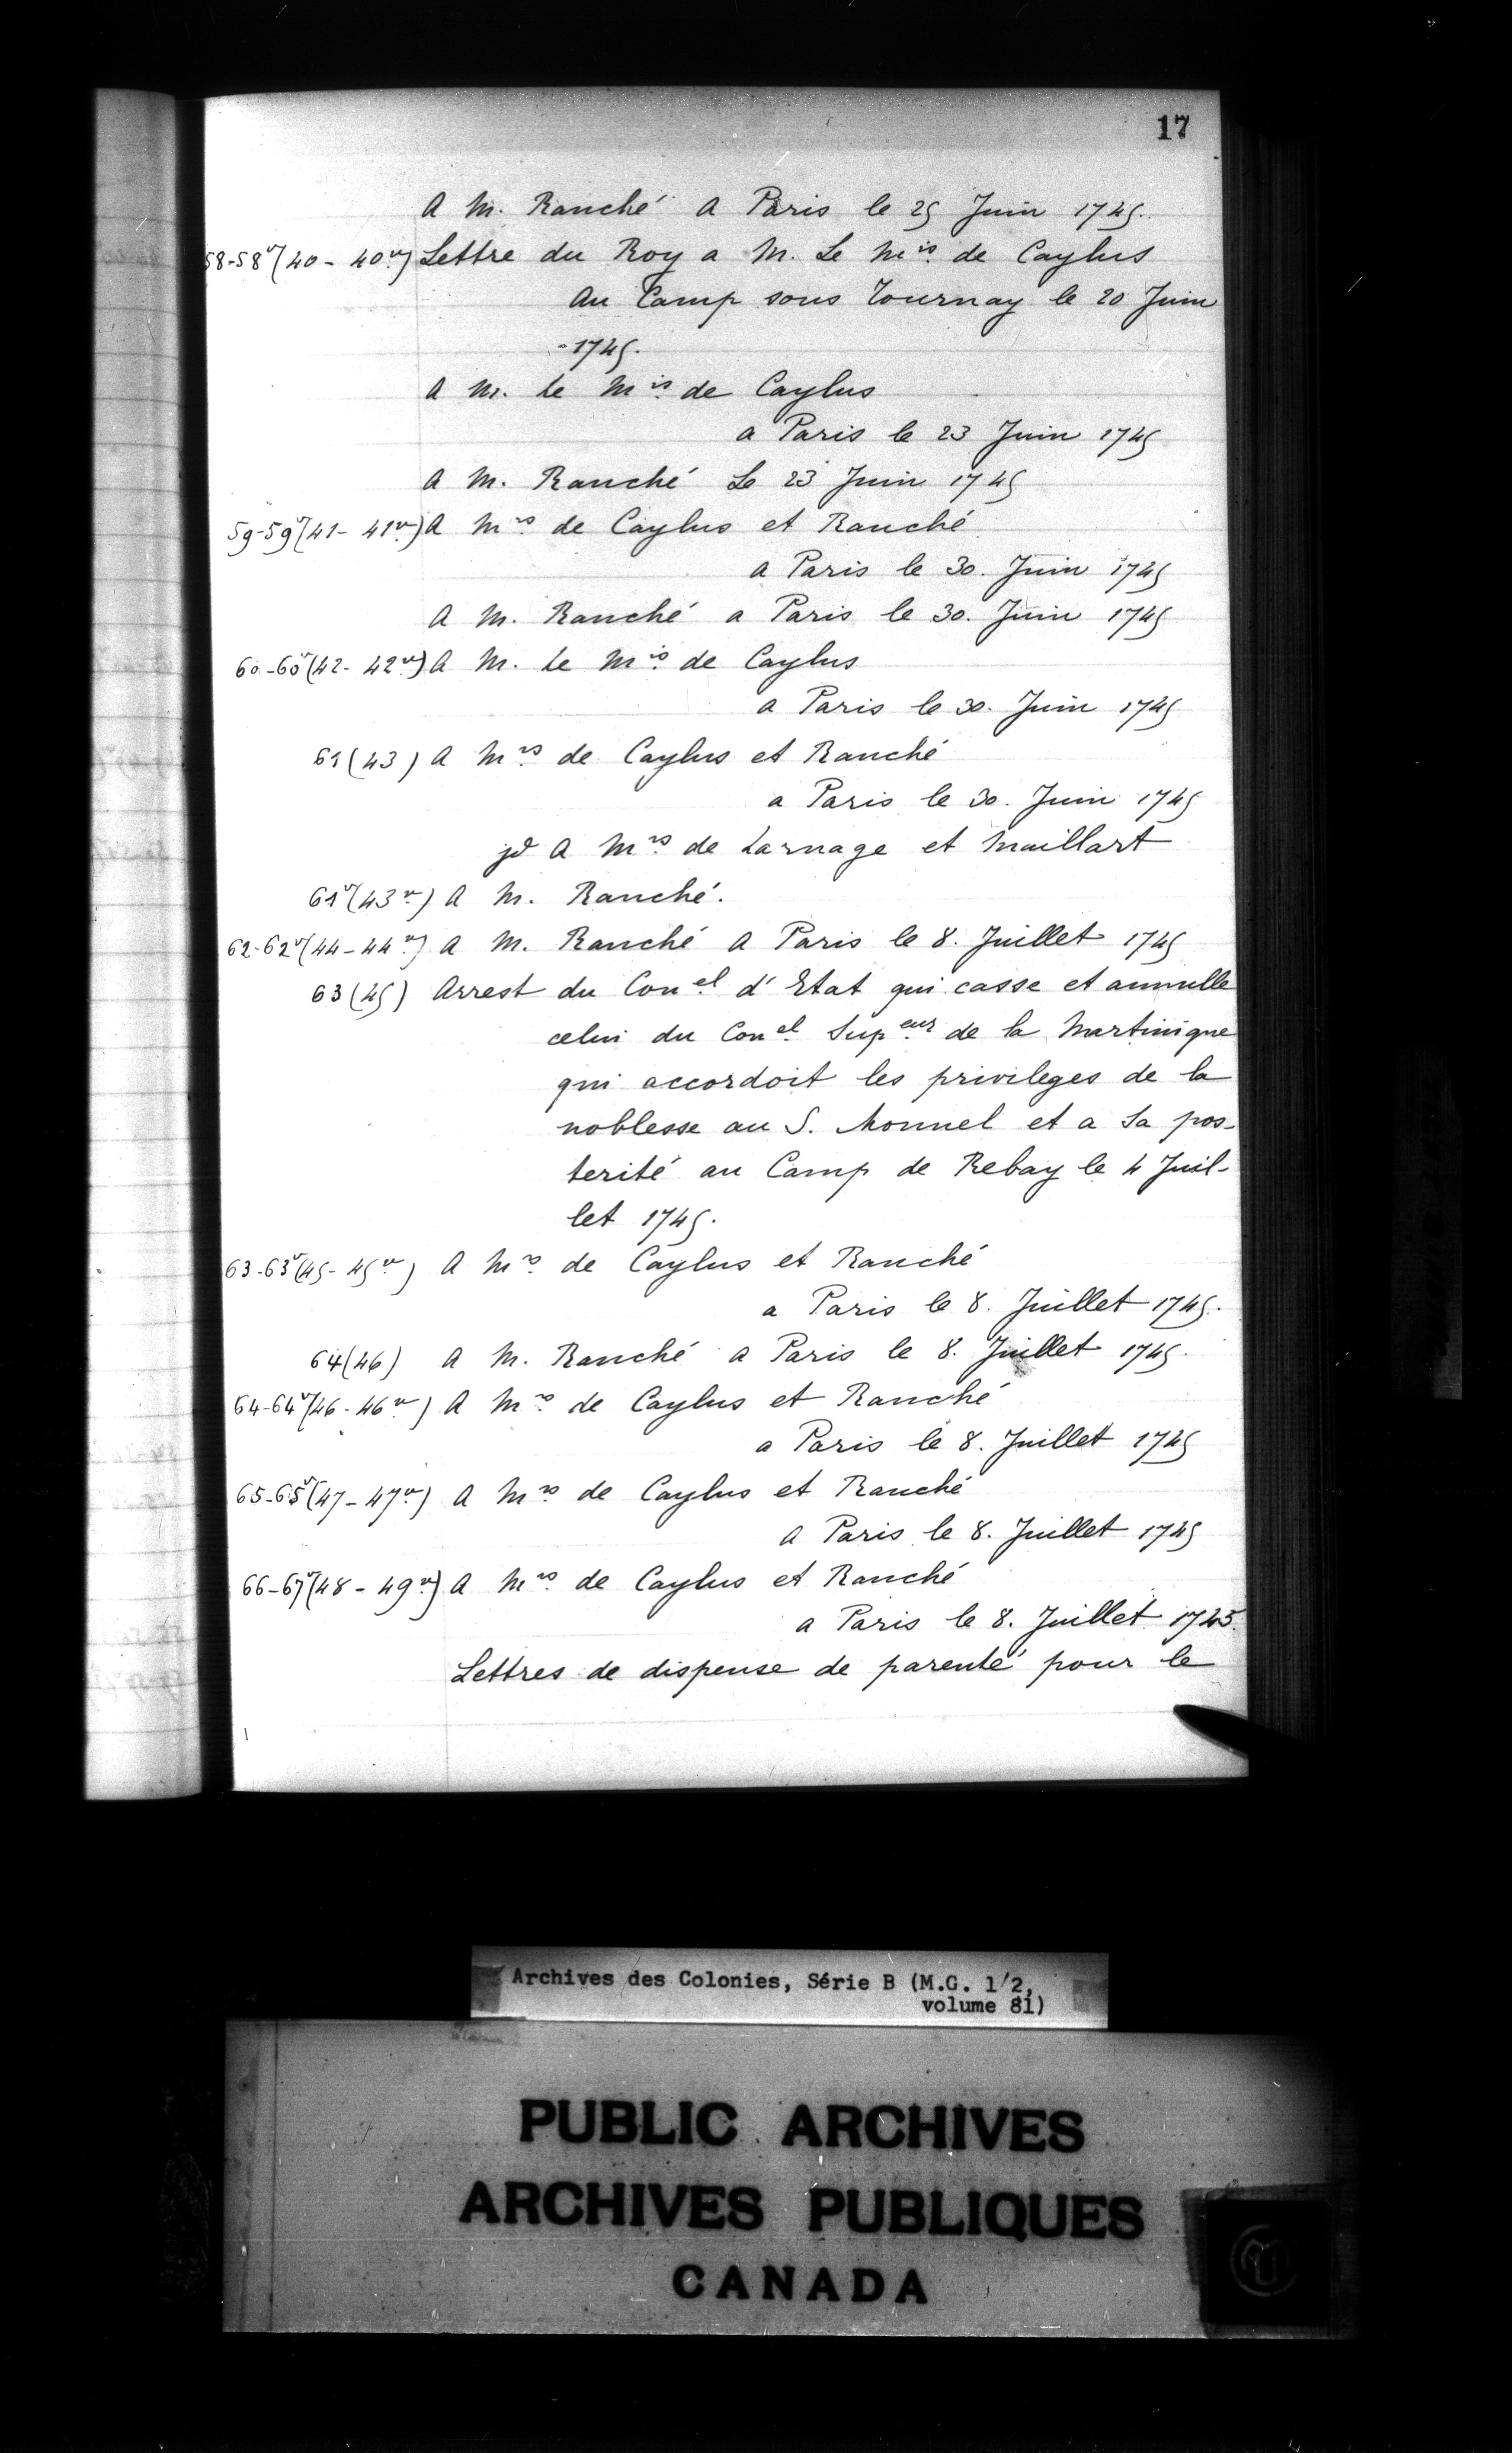 17
A M. Ranché A Paris le 25 Juin 1745.
58-58v (40 - 40v.) Lettre du Roy a M. Le Mis. de Caylus
Au Camp sous Tournay le 20 Juin
1745.
A M. le Mis. de Caylus
a Paris le 23 Juin 1745
A M. Ranché Le 23 Juin 1745
59-59v (41 - 41v.) A Mrs. de Caylus et Ranché
a Paris le 30. Juin 1745
A M. Ranché a Paris le 30. Juin 1745
60-60v (42 - 42v.) A M. le Mis. de Caylus
a Paris le 30. Juin 1745
61 (43) A Mrs. de Caylus et Ranché
a Paris le 30. Juin 1745
jd A Mrs. de Larnage et Maillart
61v (43v.) A M. Ranché.
62-62v (44 - 44v.) A M. Ranché A Paris le 8. Juillet 1745
63 (45) Arrest du Conel. d'Etat qui casse et annulle
celui du Conel. Supeur. de la Martinique
qui accordoit les privileges de la
noblesse au S. Monnel et a Sa pos-
terité au Camp de Rebay le 4 Juil-
let 1745.
63-63v (45 - 45v.) A Mrs. de Caylus et Ranché
a Paris le 8. Juillet 1745.
64 (46) A M. Ranché a Paris le 8. Juillet 1745.
64-64v (46 - 46v.) A Mrs. de Caylus et Ranché
a Paris le 8. Juillet 1745
65-65v (47 - 47v.) A Mrs. de Caylus et Ranché
A Paris le 8. Juillet 1745
66-67v (48 - 49v.) A Mrs. de Caylus et Ranché
a Paris le 8. Juillet 1745.
Lettres de dispense de parenté pour le
Archives des Colonies, Série B (M.G. 1/2,
volume 81)
PUBLIC ARCHIVES
ARCHIVES PUBLIQUES
CANADA